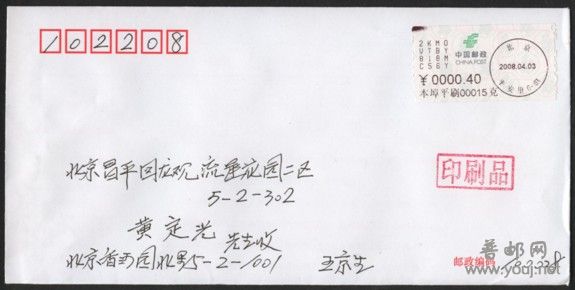 102208
2KMO
UTBY
B18M
C56Y
中国邮政
CHINA POST
¥0000.40
本埠平刷00015克
北京
2008.04.03
印刷品
北京昌平回龙观流星花园二区
5-2-302
黄定光 先生收
北京 园北里5-2-1001 王京生
邮政编码
普邮网
www.youj.net